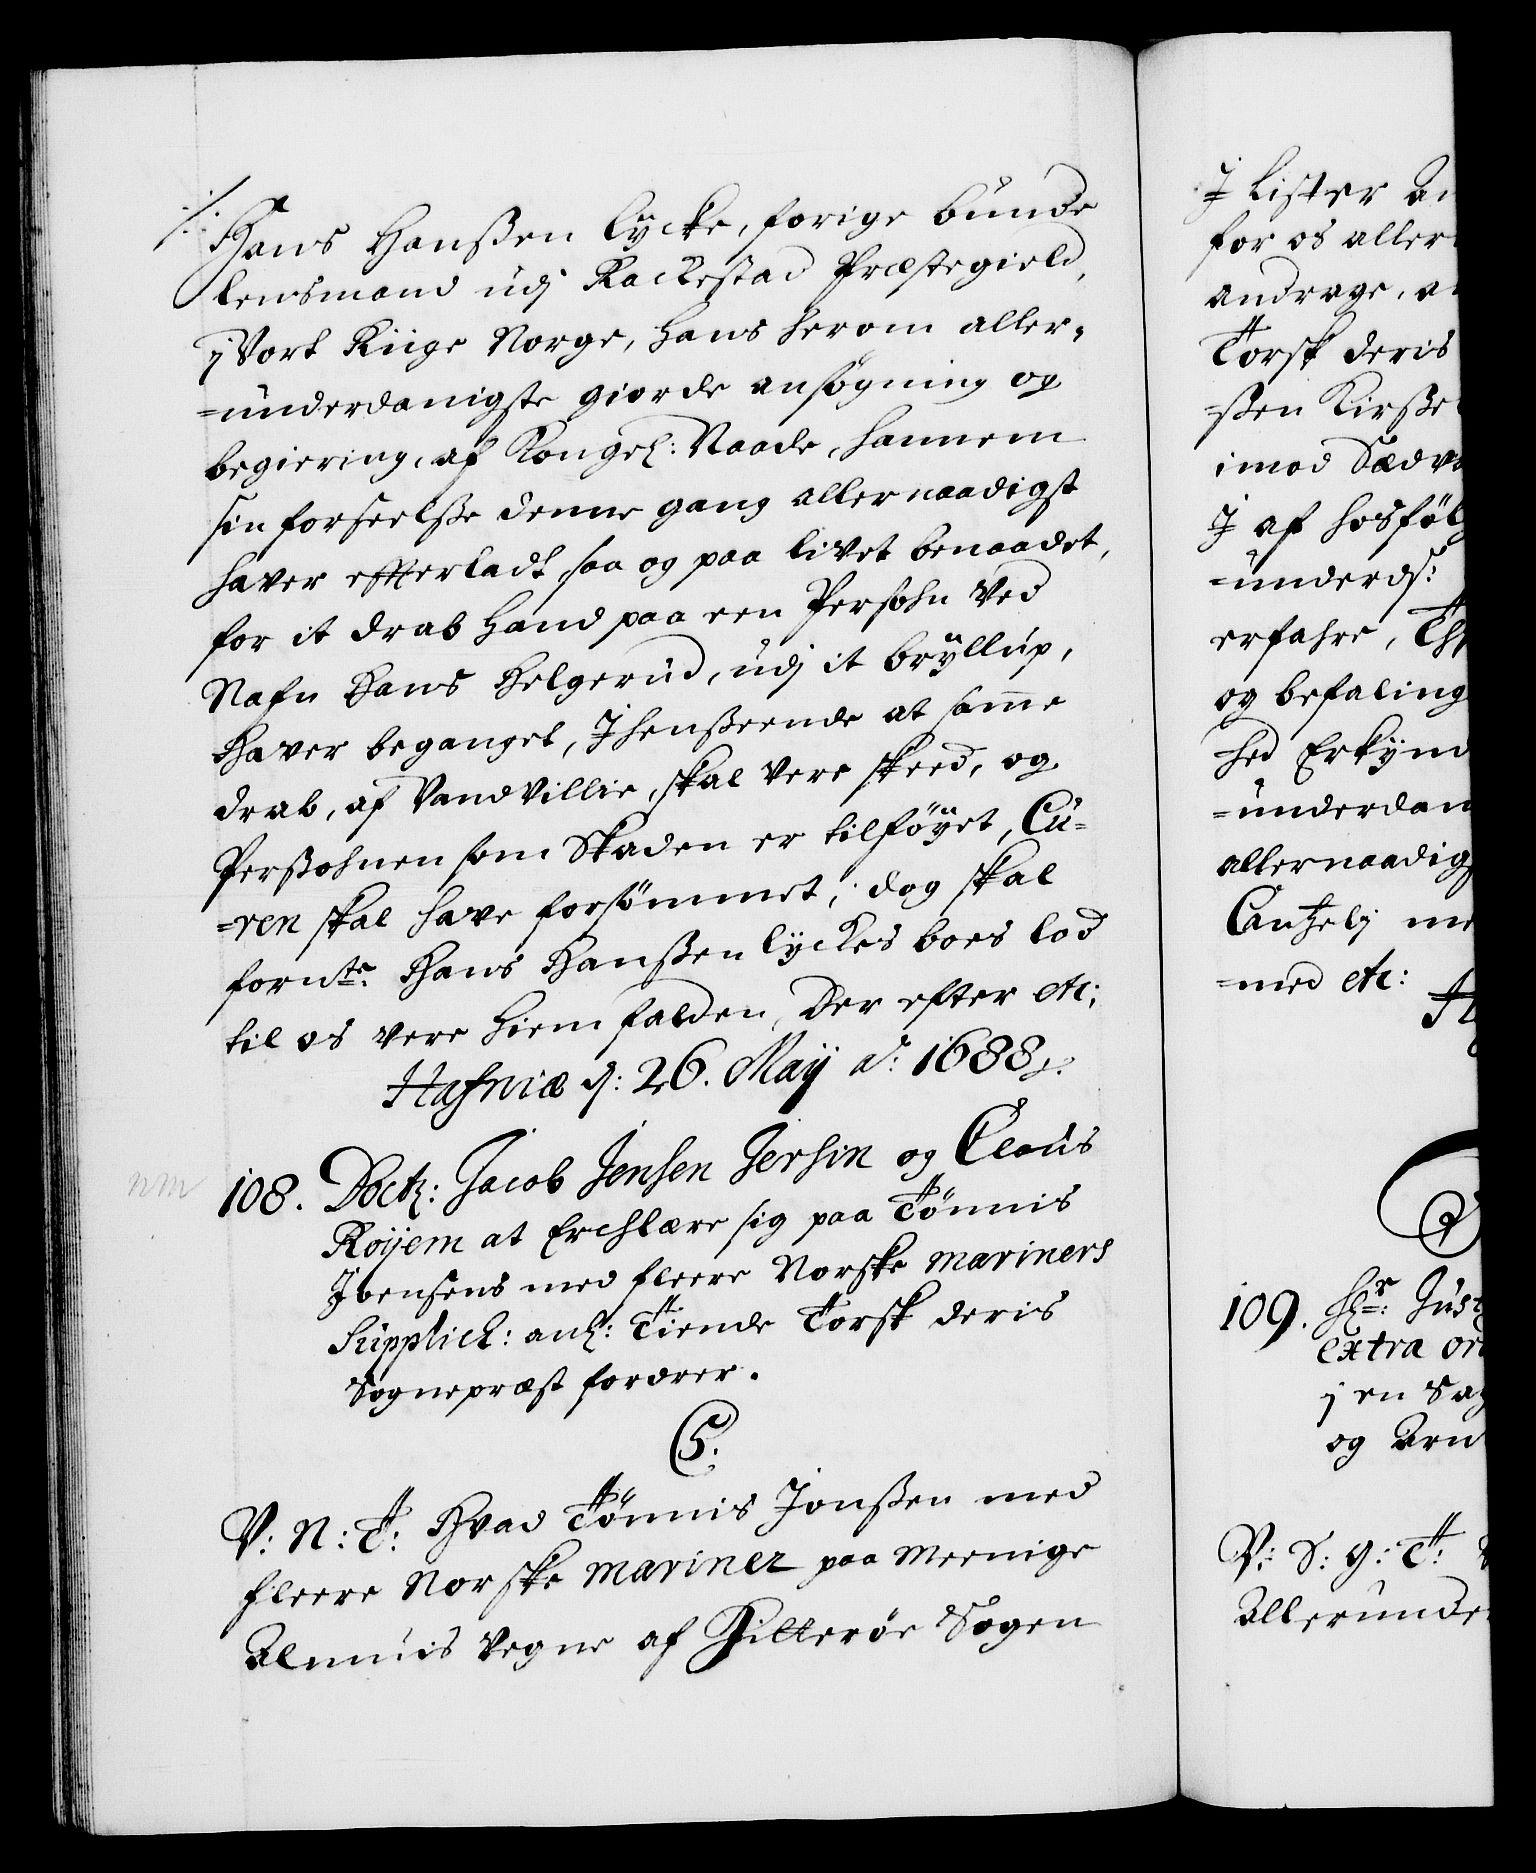 Hans Hanßen Lycke, forige bunde
lensmand udj Rackestad Præstegield,
j Vort Riige Norge, hans herom aller-
=underdanigste giorde ansøgning og
begiering, af Kongel: Naade, hannem
sin forseelße denne gang allernaadigst
haver effterladt saa og paa livet benaadet,
for it drab hand paa een Persohn ved
Nafn Hans Helgerud, udj it bryllup,
Haver beganget, J henßeende at samme
drab, af Vandvillie, skal vere skeed, og
Perßohnen som Skaden er tilføyet, Cu=
=ren skal have forsømmet, dog skal
fornte: Hans Hanßen Lyckes boes lod
til os vere hiemfalden, Der efter etc:
Hafniæ d: 26. Maij A: 1688.
nm
108. Doct: Jacob Jensen Jersin og Claus
Röyem at Erchlære sig paa Tönnis
Joensens med fleere Norske mariners
Supplich: anl: Tiende Torsk deris
Sognepræst fordrer.
C5:
V: N: T: Hvad Tönnis Jonßen med
fleere Norske mariner paa meenige
Almuis vegne af Hitterøe Sogen
J Lister
for os aller
andrage,
Torsk deris
=ßen Kirße
imod Sædv
J af hosföl
=underd:
erfahre,
og befaling
=hed Erkynd
=underdan
allernaadigs
Cantzelj me
=med etc:
109. Hr: Just
extra or
j en Sag
og Arn
V: S: G: T:
Allerunde